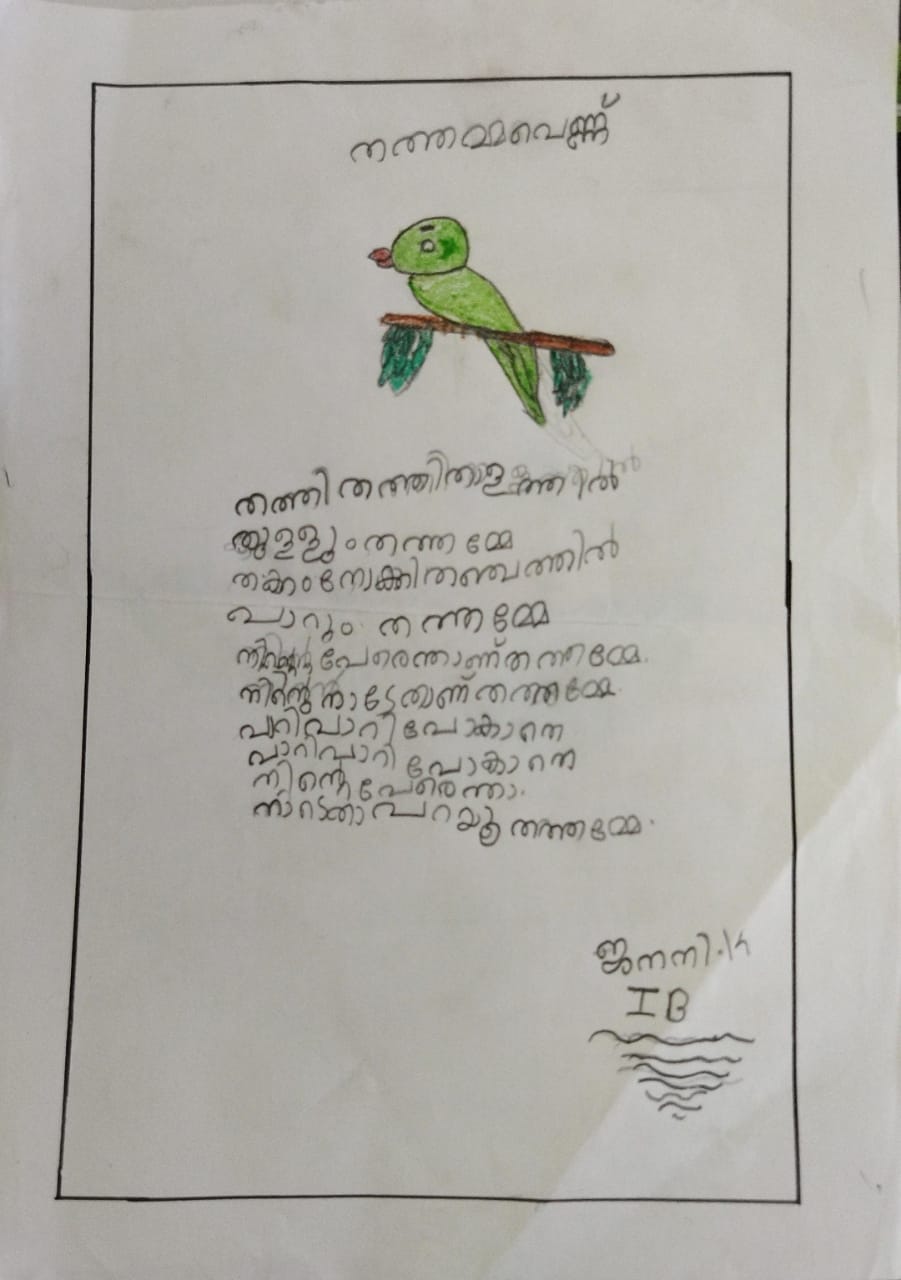 തത്തമ്മപെണ്ണ്
തത്തി തത്തിതാളത്തിൽ
തുള്ളും തത്തമ്മേ
തക്കംനോക്കിതഞ്ചത്തിൽ
പാറും തത്തമ്മേ
നിൻ്റെ പേരെന്താണ്തത്തമ്മേ.
നിൻ്റെ നാട്ടേതാണ്തത്തമ്മേ.
പാറിപാറി പോകാനെ
പാറിപാറി പോകാനെ
നിൻ്റെ പേരെന്താ.
നാടേതാ പറയൂ തത്തമ്മേ.
ജനനി.
I B